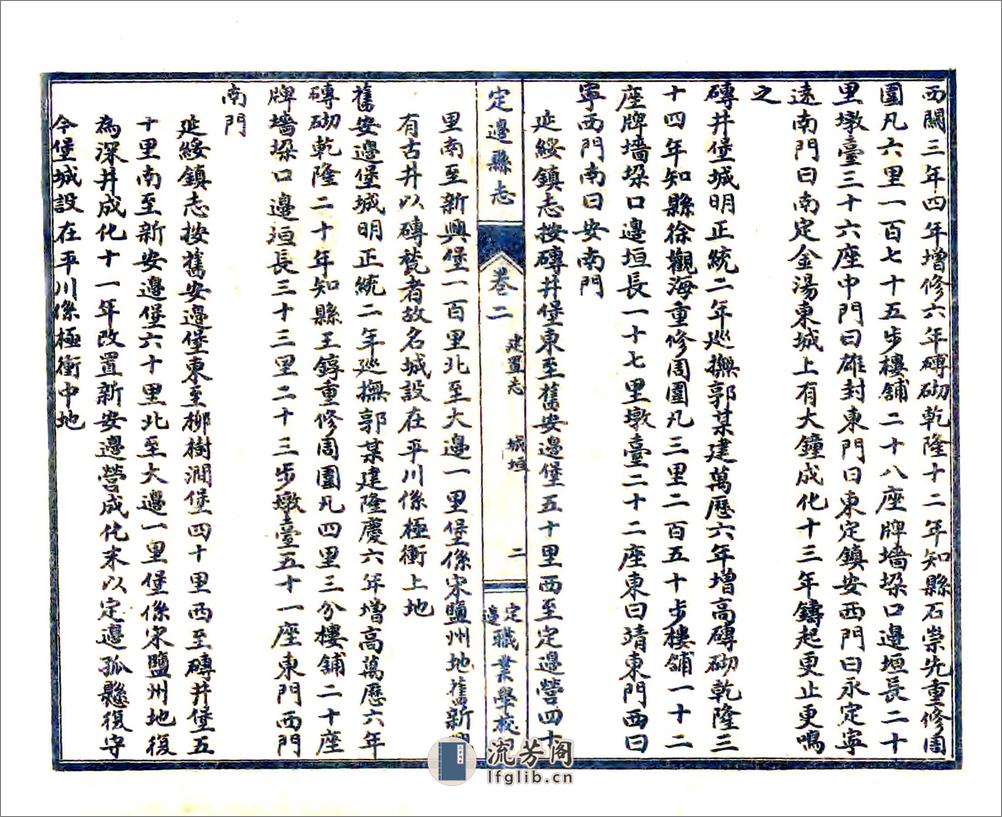 西關三年四年增修六年磚砌乾隆十二年知縣石崇先重修周
圍凡六里一百七十五步樓舖二十八座牌墻垛口邊垣長二十
里墩臺三十六座中門曰雄封東門曰東定鎮安西門曰永定寧
遠南門曰南定金湯東城上有大鐘成化十三年鑄起更止更鳴
之
磚井堡城明正統二年巡撫郭某建萬歷六年增高磚砌乾隆三
十四年知縣徐觀海重修周圍凡三里二百五十步樓舖一十二
座牌墻垛口邊垣長一十七里墩臺二十二座東曰靖東門西曰
寧西門南曰安南門
延綏鎮志按磚井堡東至舊安邊堡五十里西至定邊營四十
定邊縣志
卷二
建置志
城垣
二
定邊職業學校
里南至新興堡一百里北至大邊一里堡係宋鹽州地舊新興
有古井以磚甃者故名城設在平川係極衝上地
舊安邊堡城明正統二年巡撫郭某建隆慶六年增高萬歷六年
磚砌乾隆二十年知縣王錞重修周圍凡四里三分樓舖二十座
牌墻垛口邊垣長三十三里二十三步墩臺五十一座東門西門
南門
延綏鎮志按舊安邊堡東至柳樹澗堡四十里西至磚井堡五
十里南至新安邊堡六十里北至大邊一里堡係宋鹽州地復
為深井成化十一年改置新安邊營成化末以定邊孤懸復守
今堡城設在平川係極衝中地
流芳阁
lfglib.cn